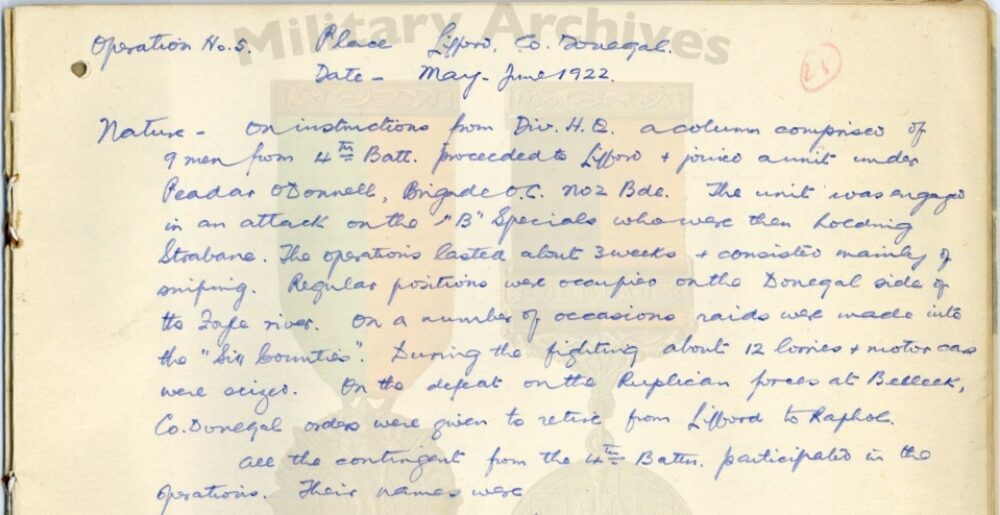 Military Archives
Operation No. 5. Place Lifford, Co. Donegal.
Date - May - June 1922.
25
Nature - On instructions from Div. H.Q. a column comprised of
9 men from 4th Batt. proceeded to Lifford + joined a unit under
Peadar O'Donnell, Brigade O.C. No 2 Bde. The unit was engaged
in an attack on the "B" Specials who were then holding
Strabane. The operations lasted about 3 weeks + consisted mainly of
sniping. Regular positions were occupied on the Donegal side of
the Foyle river. On a number of occasions raids were made into
the "Six Counties". During the fighting about 12 lorries + motor cars
were seized. On the defeat on the Ruplican forces at Belleek,
Co. Donegal orders were given to retire from Lifford to Raphoe.
All the contingent from the 4th Battn. participated in the
operations. Their names were